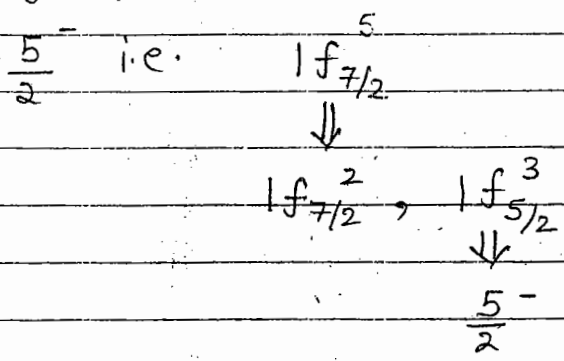 5/2⁻ i.e. 1f₇/₂⁵
⇓
1f₇/₂², 1f₅/₂³
⇓
5/2⁻